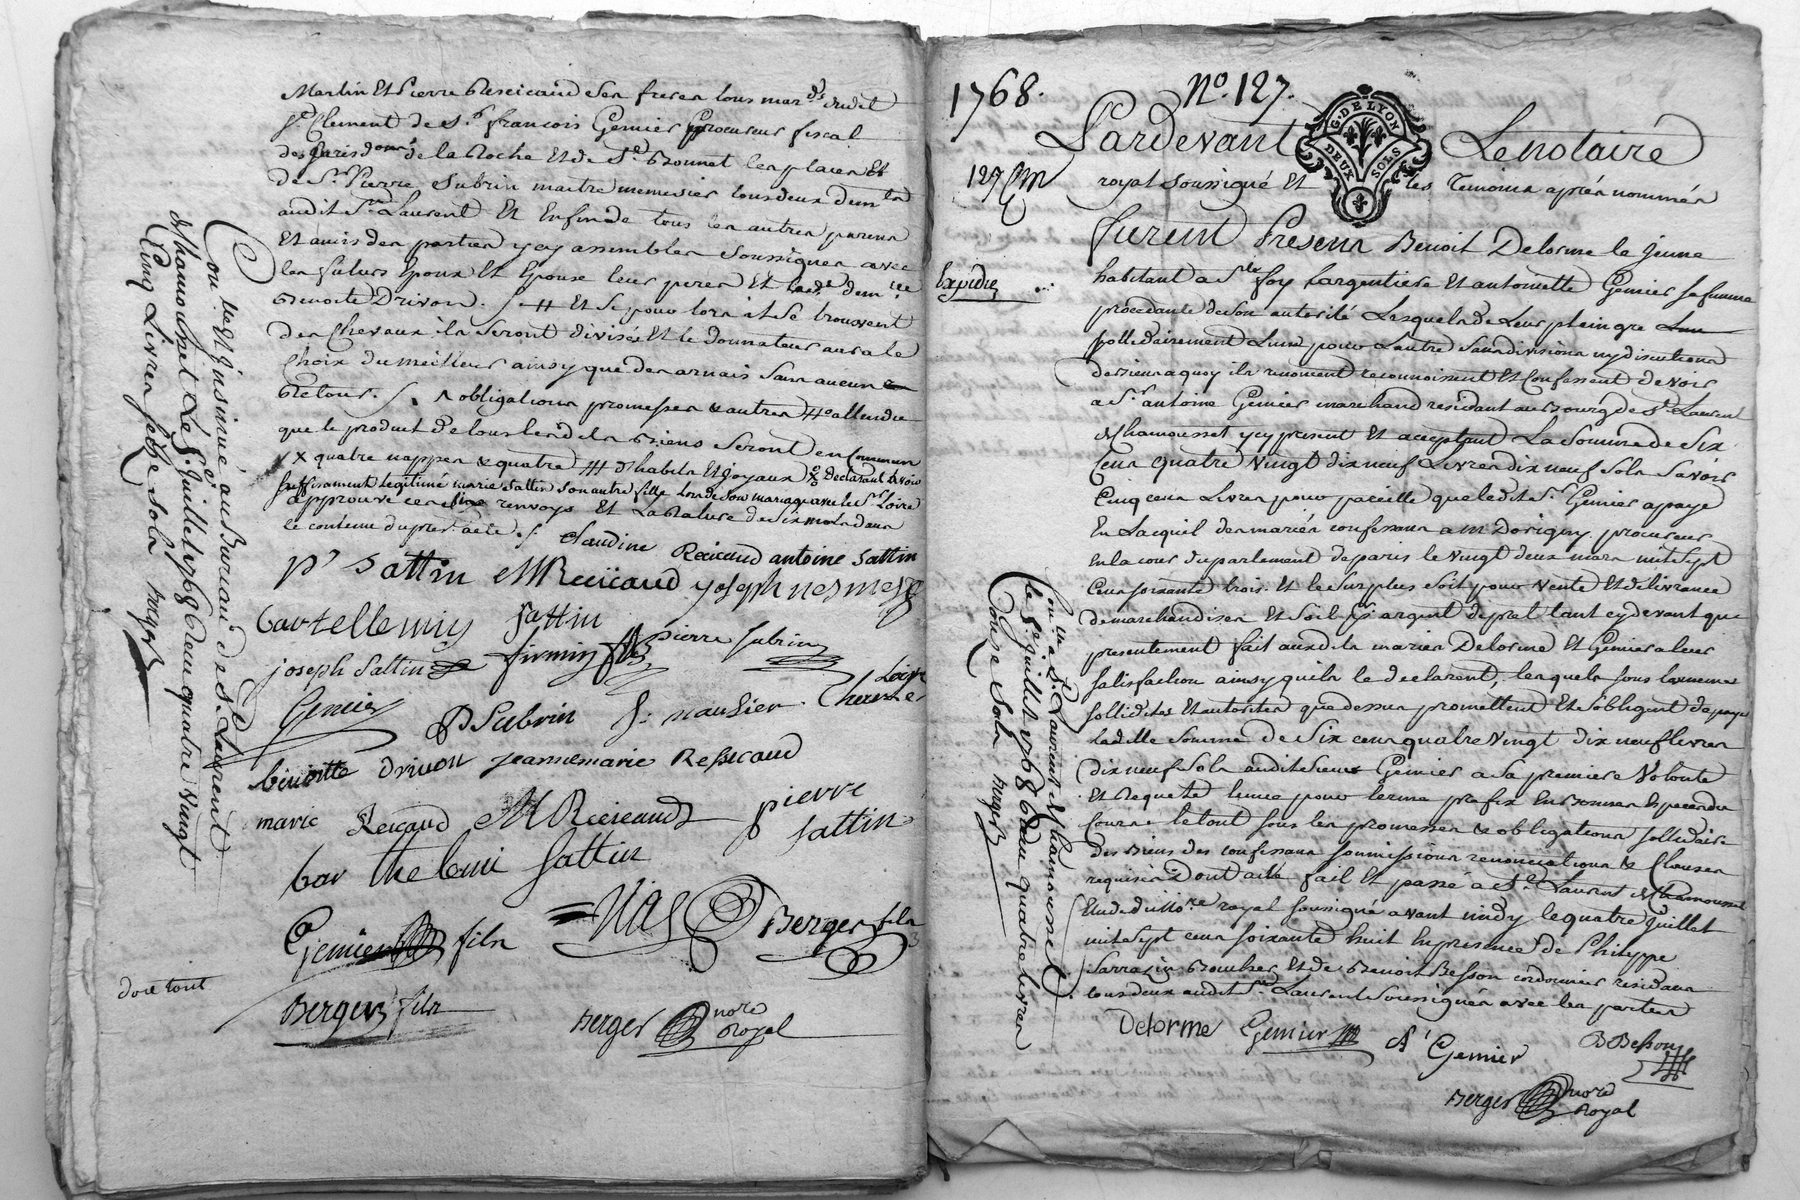 Martin Et Pierre Recicaud Ses freres tous mar.ds dudit
St. Clement de Sr. francois Gemier procureur fiscal
des Jurisd.ons de la Roche Et de St. Bonnet les places Et
de Sr. Pierre Subrin maitre menuisier tous deux dem.ts
audit St. Laurent Et Enfin de tous les autres parens
Et amis des parties y cy assemblés Soussignés avec
les futurs Epoux Et Epouse leurs peres Et dem.lle
Benoite Drivon . Et Sy pour lors il Se trouvent
des Chevaux ils Seront divisés Et le donnateur aura le
Choix du meilleur ainsy que des arnais Sans aucun
Retour . obligations promesses & autres attendu
que le produit de tous lesd. Biens Seront en Commun
X quatre nappes & quatre d'habits Et joyaux declarant avoir
suffisament légitimé marie Sattin Son autre fille lors de Son mariage avec le Sr. Loire
approuvé ces renvoys Et La Rature de Six mots dans
le contenu du pres.t acte
Claudine Recicaud antoine Sattin
p. Sattin M Recicaud joseph nesme
bartellemis Sattin
joseph Sattin firmin pierre Subrin
Gemier P Subrin Loire
benoitte Drivon jeannemarie Ressicaud
marie Recicaud M Recicaud pierre
Sattin
bar thelemi Sattin
Gemier fils Berger fils
Berger fils Berger no.re
Royal
doit tout
Con.lle Et insinué au Bureau de St. Laurent
de Chamousset Le 8 Juillet 1768 Recu quatre Vingt
Cinq Livres Seize Sols Berger
1768. No. 127.
G. DE LYON
DEUX SOLS
Pardevant Le notaire
127
royal Soussigné Et les Temoins aprés nommés
furent Presens Benoit Delorme le jeune
Expédié
habitant a Ste. foy Largentiere Et antoinette Gemier Sa femme
procedante de Son autorité Lesquels de Leur plein gré
sollidairement L'une pour L'autre Sans division ny discution
de Biens a quoy ils renoncent reconnoissent Et Confessent devoir
a Sr. antoine Gemier marchand residant au Bourg de St. Laurent
de Chamousset y cy present Et aceptant La Somme de Six
Cens quatre Vingt dix neuf Livres dix neuf Sols Savoir
Cinq cens Livres pour pareille que ledit Sr. Gemier a payé
En Lacquit des mariés confessans a m.e Dorigny procureur
en la cour du parlement de paris le Vingt deux mars mil Sept
Cens Soixante trois. Et le Surplus Soit pour Vente Et delivrance
de marchandises Et Soit en argent de pret tant cy devant que
presentement fait auxd.ts mariés Delorme Et Gemier a leur
Satisfaction ainsy quils le declarent, lesquels Sous la meme
Sollidité Et autorité que dessus promettent Et S'obligent de payer
Ladite Somme de Six cens quatre Vingt dix neuf livres
dix neuf Sols audit Sieur Gemier a Sa premiere Volonté
Et Requete L'une pour terme prefix
le tout Sous les promesses & obligations Sollidaires
des Biens des confessans Soumissions renonciations & Clauses
requises Dont acte fait Et passé a St. Laurent de Chamousset
Etude du No.re royal Soussigné avant midy le quatre Juillet
mil Sept cens Soixante huit En presence de Philippe
Sarrazin Boucher Et de Benoit Besson cordonnier residans
tous deux audit St. Laurent Soussignés avec les parties
Delorme Gemier A Gemier B Besson
Berger no.re
Royal
Con.lle a St. Laurent de Chamousset
le 8e. Juillet 1768 Recu quatre livres
Onze Sols Berger